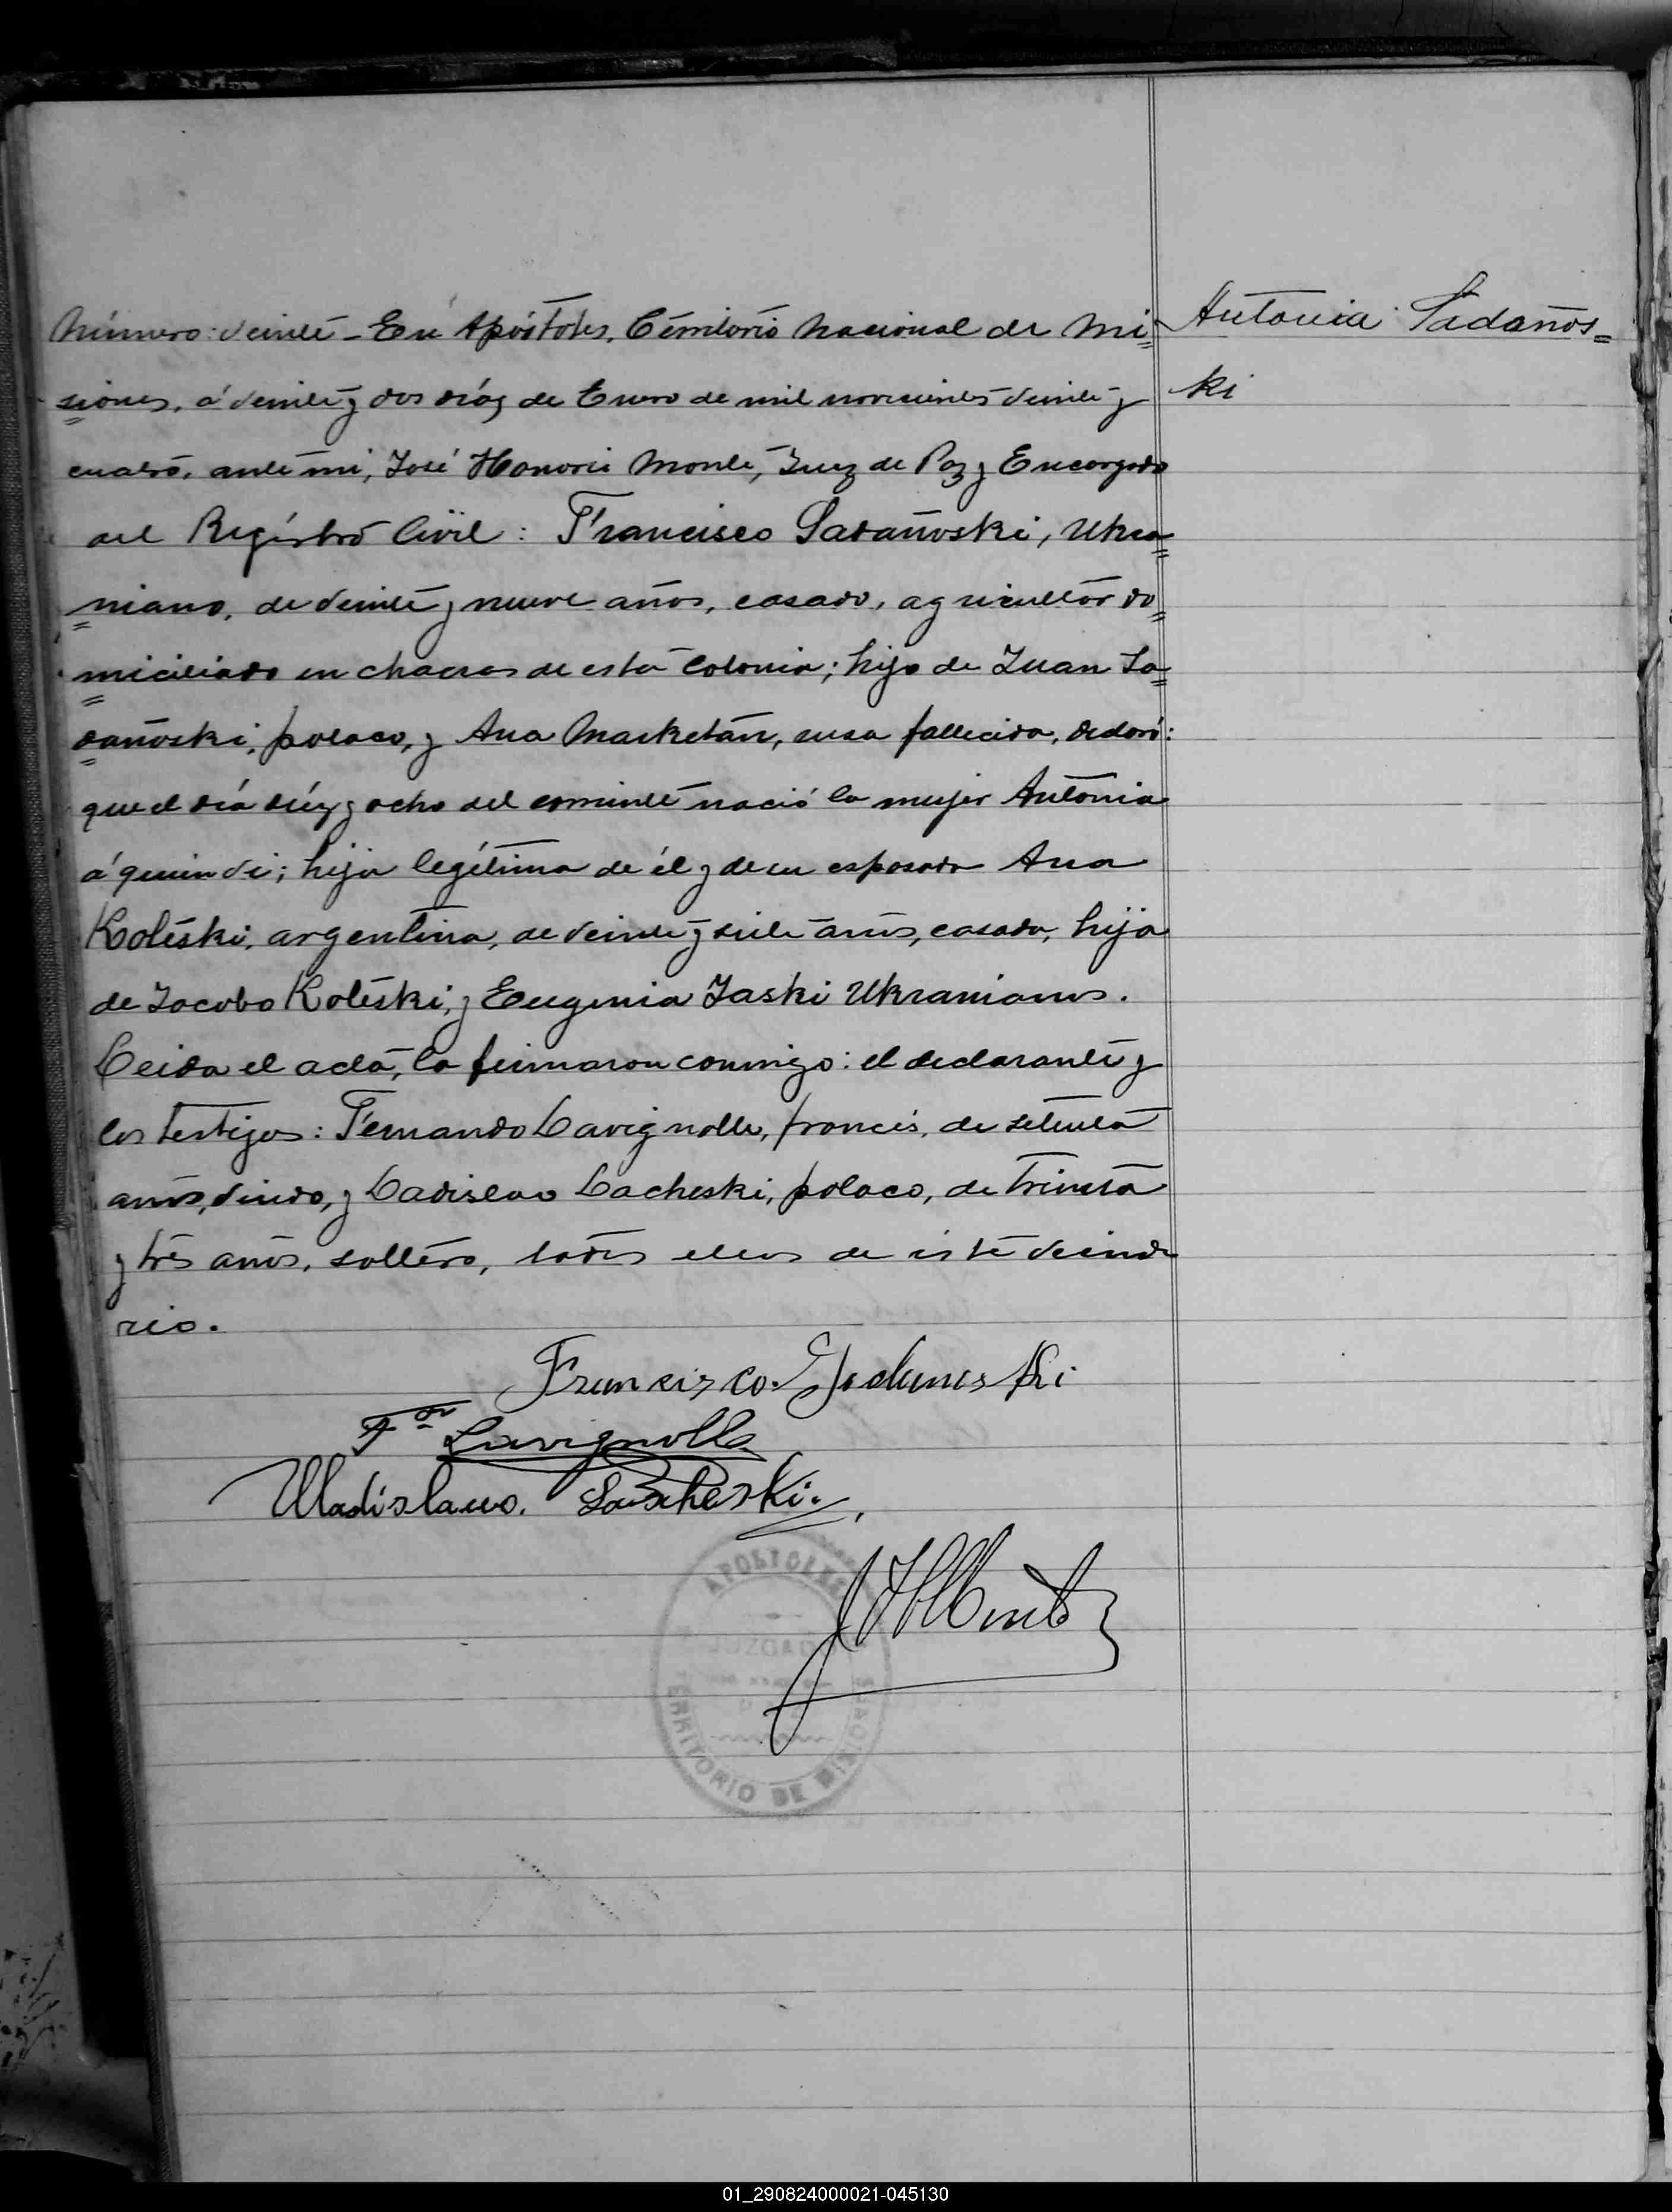 Número: veinte - En Apóstoles, Territorio Nacional de Mi=
siones, á veinte y dos días de Enero de mil novecientos veinte y
cuatro, ante mi, José Honorio Monte, Juez de Paz y Encargado
del Registro Civil: Francisco Sadañoski, Ukra=
niano, de veinte y nueve años, casado, agricultor do=
miciliado en chacras de esta Colonia; hijo de Juan Sa=
dañoski, polaco, y Ana Marketan, rusa fallecida, declaró:
que el día diez y ocho del corriente nació la mujer Antonia
á quien vi; hija legítima de él y de su esposada Ana
Koleski, argentina, de veinte y siete años, casada, hija
de Jacobo Koleski, y Eugenia Jaski Ukranianos.
Leida el acta, la firmaron conmigo: el declarante y
los testigos: Fernando Lavignolle, francés, de setenta
años, viudo, y Ladislao Lacheski, polaco, de treinta
y tres años, soltero, todos ellos de éste vecinda
rio.
Antonia Sadaños=
ki
Francisco Sadanoski
Fdo Lavignolle
Wladislauo. Lascheski.
JHMonte
APOSTOLES
JUZGADO
TERRITORIO DE MISIONES
01_290824000021-045130